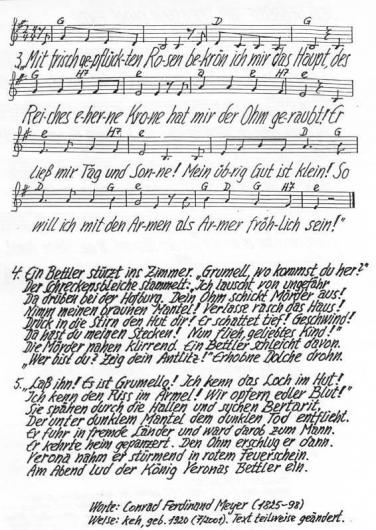 G D G
3. Mit frisch ge-pflück-ten Ro-sen be-krön ich mir das Haupt, des
G H7 e a D G
Rei-ches e-her-ne Kro-ne hat mir der Ohm ge-raubt! Er
e H7 e D G
ließ mir Tag und Son-ne! Mein üb-rig Gut ist klein! So
D G D G H7 e
will ich mit den Ar-men als Ar-mer fröh-lich sein!"
4. Ein Bettler stürzt ins Zimmer. „Grumell, wo kommst du her?"
Der Schreckensbleiche stammelt: „Ich lauscht von ungefähr
Da drüben bei der Hofburg. Dein Ohm schickt Mörder aus!
Nimm meinen braunen Mantel! Verlasse rasch das Haus!
Drück in die Stirn den Hut dir! Er schattet tief! Geschwind!
Da hast du meinen Stecken! Nun flieh, geliebtes Kind!"
Die Mörder nahen klirrend. Ein Bettler schleicht davon.
„Wer bist du? Zeig dein Antlitz!" Erhobne Dolche drohn.
5. „Laß ihn! Es ist Grumello! Ich kenn das Loch im Hut!
Ich kenn den Riss im Ärmel! Wir opfern edler Blut!"
Sie spähen durch die Hallen und suchen Bertarit,
Der unter dunklem Mantel dem dunklen Tod entflieht.
Er fuhr in fremde Länder und ward darob zum Mann.
Er kehrte heim gepanzert. Den Ohm erschlug er dann.
Verona nahm er stürmend in rotem Feuerschein.
Am Abend lud der König Veronas Bettler ein.
Worte: Conrad Ferdinand Meyer (1825-98)
Weise: keh, geb. 1920 (7/2001). Text teilweise geändert.